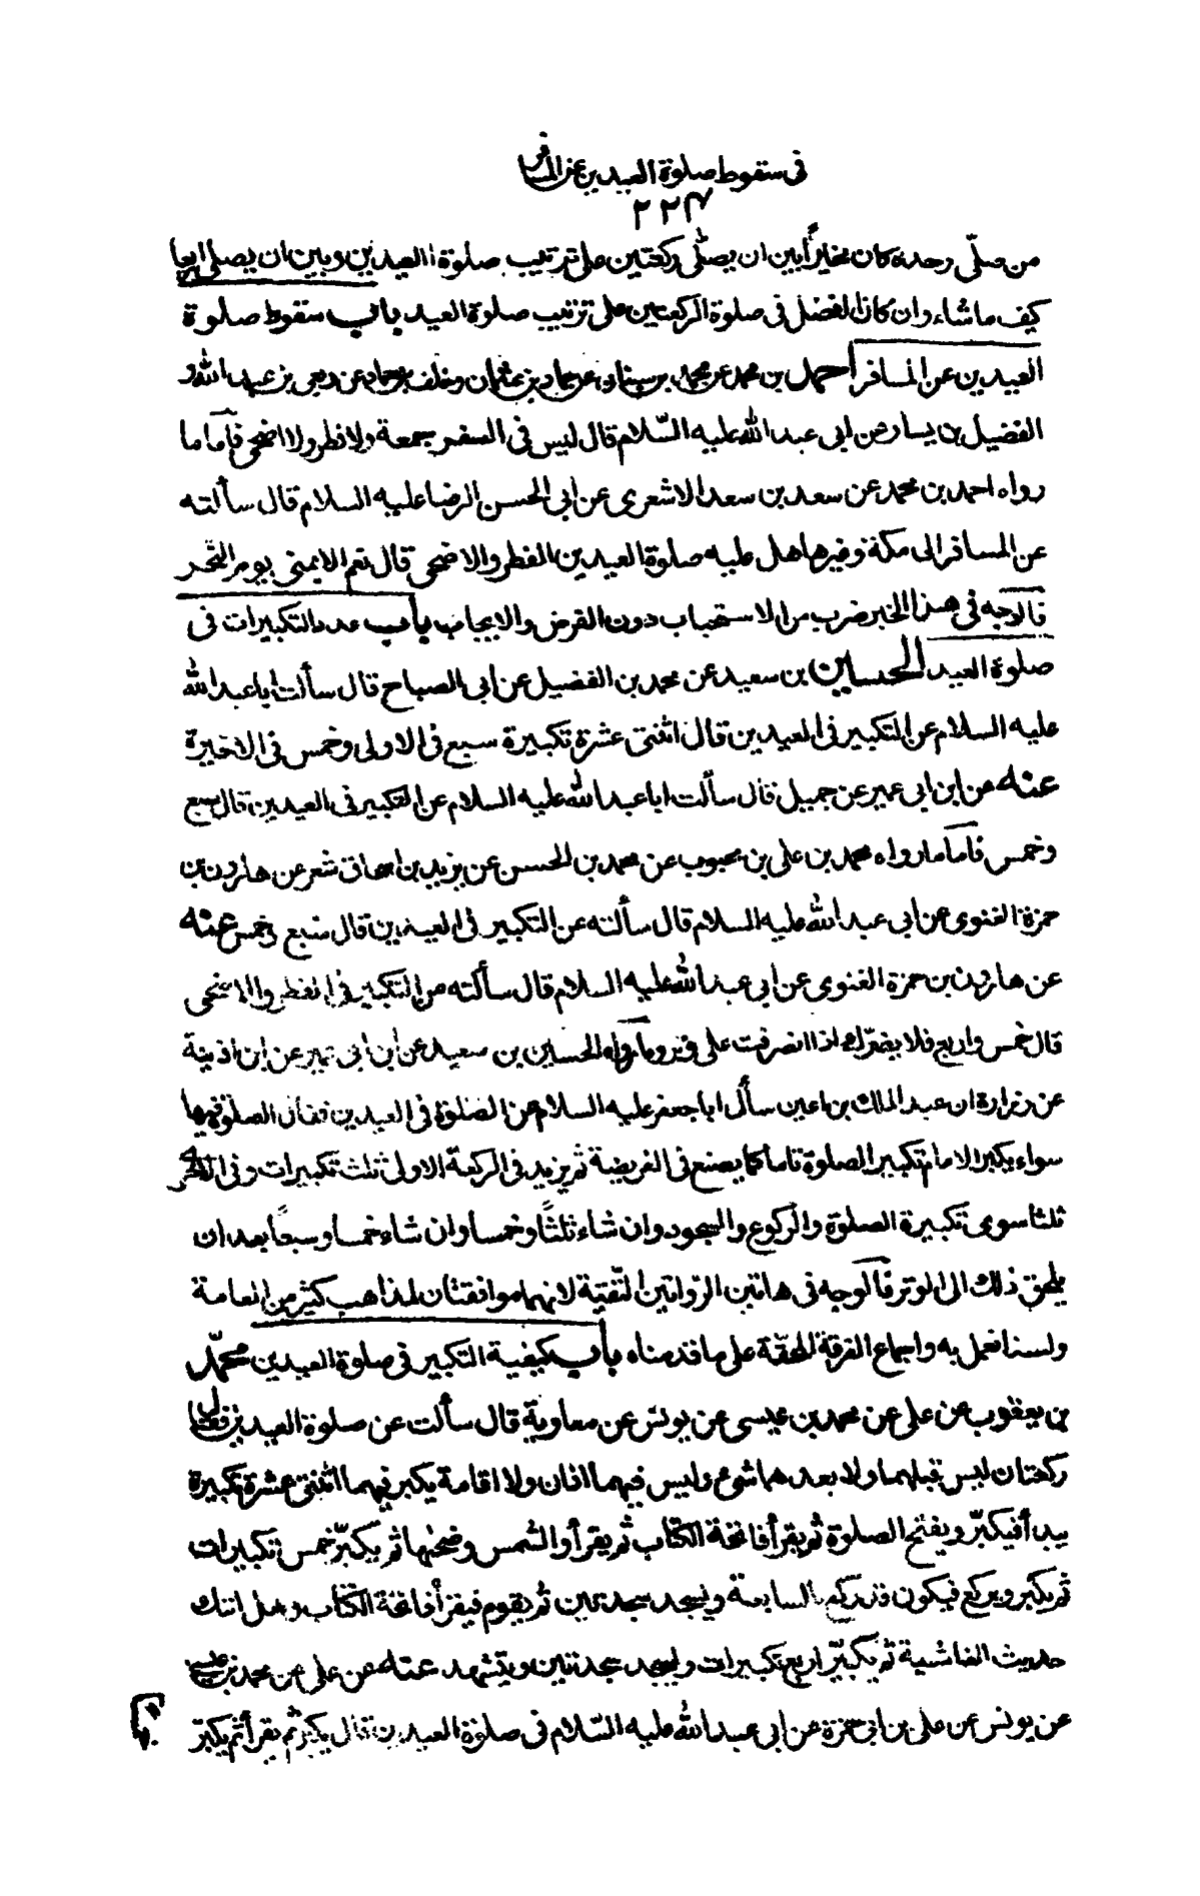 فى سقوط صلوة العيدين عن المسافر
٢٢٣
من صلّى وحده كان مخيراً بين ان يصلّى ركعتين على ترتيب صلوة العيدين وبين ان يصلى اربعا
كيف ما شاء وان كان الفضل فى صلوة الركعتين على ترتيب صلوة العيد باب سقوط صلوة
العيدين عن المسافر احمد بن محمد عن محمد بن سنان عن حماد بن عثمان وخلف بن حماد عن ربعى بن عبد الله و
الفضيل بن يسار عن ابى عبد الله عليه السّلام قال ليس فى السفر جمعة ولا فطر ولا اضحى فامّا ما
رواه احمد بن محمد عن سعد بن سعد الاشعرى عن ابى الحسن الرضا عليه السلام قال سألته
عن المسافر الى مكة وغيرها هل عليه صلوة العيدين الفطر والاضحى قال نعم الا بمنى يوم النّحر
فالوجه فى هذا الخبر ضرب من الاستحباب دون الفرض والايجاب باب عدد التكبيرات فى
صلوة العيد الحسين بن سعيد عن محمد بن الفضيل عن ابى الصباح قال سألت ابا عبد الله
عليه السلام عن التكبير فى العيدين قال اثنتى عشرة تكبيرة سبع فى الاولى وخمس فى الاخيرة
عنه عن ابن ابى عمير عن جميل قال سألت ابا عبد الله عليه السلام عن التكبير فى العيدين قال سبع
وخمس فامّا ما رواه محمد بن على بن محبوب عن محمد بن الحسن عن يزيد بن اسحاق شعر عن هارون بن
حمزة الغنوى عن ابى عبد الله عليه السلام قال سألته عن التكبير فى العيدين قال سبع وخمس عنه
عن هارون بن حمزة الغنوى عن ابى عبد الله عليه السلام قال سألته عن التكبير فى الفطر والاضحى
قال خمس واربع فلا يضرّك اذا انصرفت على وتر وما رواه الحسين بن سعيد عن ابن ابى عمير عن ابن اذينة
عن زرارة ان عبد الملك بن اعين سأل ابا جعفر عليه السلام عن الصلوة فى العيدين فقال الصلوة فيهما
سواء يكبر الامام تكبير الصلوة تاما كما يصنع فى الفريضة ثم يزيد فى الركعة الاولى ثلث تكبيرات وفى الاخرى
ثلثا سوى تكبيرة الصلوة والركوع والسجود وان شاء ثلثاً وخمسا وان شاء خمسا وسبعاً بعد ان
يلحق ذلك الى الوتر فالوجه فى هاتين الرّوايتين التّقيّة لانهما موافقتان لمذاهب كثير من العامة
ولسنا نعمل به واجماع الفرقة المحقة على ما قدمناه باب كيفية التكبير فى صلوة العيدين محمّد
بن يعقوب عن على عن محمد بن عيسى عن يونس عن معاوية قال سألت عن صلوة العيدين فقال
ركعتان ليس قبلهما ولا بعدهما شئ وليس فيهما اذان ولا اقامة يكبر فيهما اثنتى عشرة تكبيرة
يبدأ فيكبّر ويفتتح الصلوة ثم يقرأ فاتحة الكتاب ثم يقرأ والشمس وضحٰيها ثم يكبّر خمس تكبيرات
ثم يكبر ويركع فيكون قد ركع بالسابعة ويسجد سجدتين ثم يقوم فيقرأ فاتحة الكتاب وهل اتٰك
حديث الغاشية ثم يكبّر اربع تكبيرات ويسجد سجدتين ويتشهد عنه عن على عن محمد بن عيسى
عن يونس عن على بن ابى حمزة عن ابى عبد الله عليه السّلام فى صلوة العيدين قال يكبّر ثم يقرأ ثم يكبّر